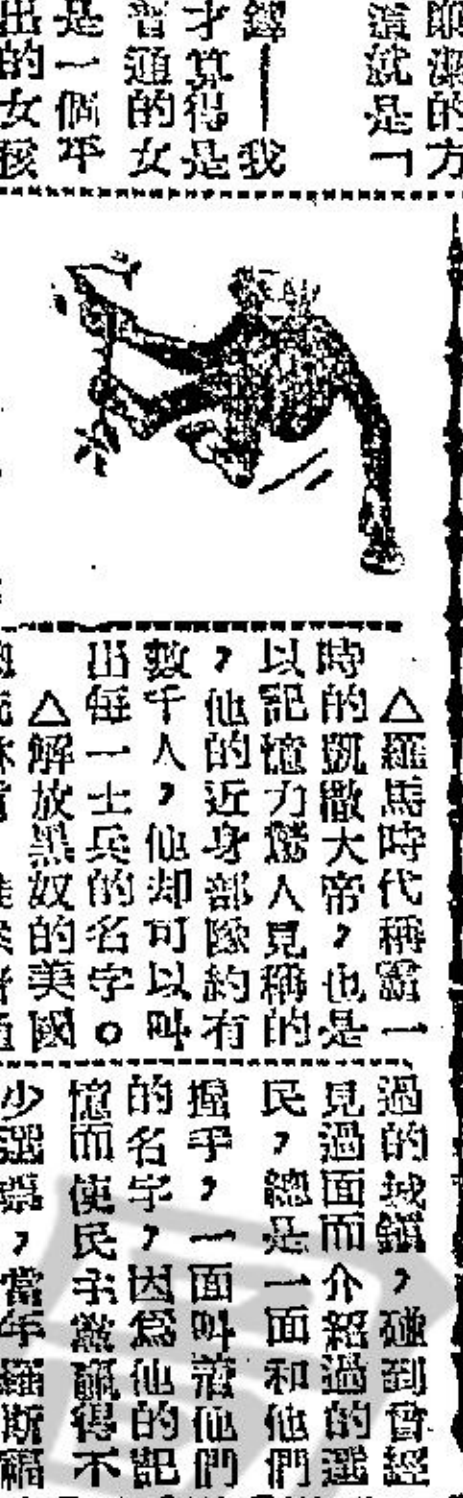 潔的方
這就是「
鐸——我
才算得是
普通的女
是一個平
出的女孩
△羅馬時代稱霸一
時的凱撒大帝，也是
以記憶力驚人見稱的
，他的近身部隊約有
數千人，他却可以叫
出每一士兵的名字。
△解放黑奴的美國
過的城鎮，碰到曾經
見過面而介紹過的選
民，總是一面和他們
握手，一面叫着他們
的名字，因爲他的記
憶而使民主黨贏得不
少選票，當年羅斯福